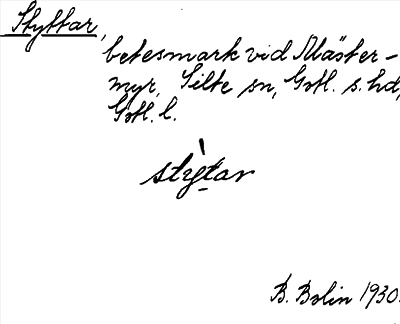 Styttar,
betesmark vid Mäster-
myr, Silte sn, Gotl. s. hd,
Gotl. l.
stỳtar
B. Bolin 1930.